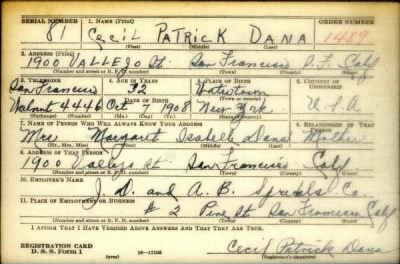 SERIAL NUMBER 1. NAME (Print) ORDER NUMBER
81 Cecil Patrick Dana 1489
(First) (Middle) (Last)
2. ADDRESS (Print)
1900 Vallejo St. San Francisco S.F. Calif
(Number and street or R. F. D. number) (Town) (County) (State)
3. TELEPHONE 4. AGE IN YEARS 5. PLACE OF BIRTH 6. COUNTRY OF CITIZENSHIP
San Francisco 32 Watertown
DATE OF BIRTH (Town or county)
Walnut 4446 Oct 7 1908 New York U.S.A
(Exchange) (Number) (Mo.) (Day) (Yr.) (State or country)
7. NAME OF PERSON WHO WILL ALWAYS KNOW YOUR ADDRESS 8. RELATIONSHIP OF THAT PERSON
Mrs Margaret Isabelle Dana Mother
(Mr., Mrs., Miss) (First) (Middle) (Last)
9. ADDRESS OF THAT PERSON
1900 Vallejo St San Francisco Calf
(Number and street or R. F. D. number) (Town) (County) (State)
10. EMPLOYER'S NAME
J. D. and A. B. Spreckels Co.
11. PLACE OF EMPLOYMENT OR BUSINESS
# 2 Pine St. San Francisco Calf
(Number and street or R. F. D. number) (Town) (County) (State)
I AFFIRM THAT I HAVE VERIFIED ABOVE ANSWERS AND THAT THEY ARE TRUE.
REGISTRATION CARD
D. S. S. Form 1 16-17105 Cecil Patrick Dana
(Registrant's signature)